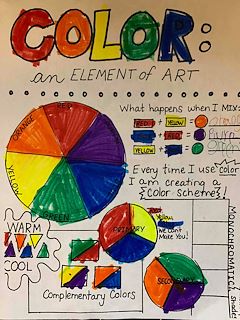 COLOR:
an ELEMENT of ART
What happens when I MIX:
RED + YELLOW = Orange
+ RED = Purple
YELLOW + = Green
RED
ORANGE
YELLOW
GREEN
Every Time I use color
I am creating a
{Color scheme!}
WARM
COOL
PRIMARY
Yellow
We Can't
Make You!
SECONDARY
Complementary Colors
MONOCHROMATIC
Shades